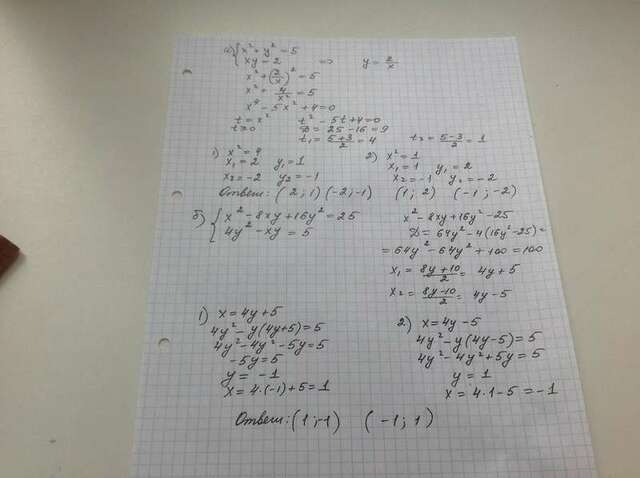 а) { x² + y² = 5
xy = 2 => y = 2/x
x² + (2/x)² = 5
x² = 4/x² = 5
x⁴ - 5x² + 4 = 0
t = x² t² - 5t + 4 = 0
t ≥ 0 D = 25 - 16 = 9
t₁ = (5+3)/2 = 4 t₂ = (5-3)/2 = 1
1) x² = 4
x₁ = 2 y₁ = 1
x₂ = -2 y₂ = -1
2) x² = 1
x₁ = 1 y₁ = 2
x₂ = -1 y₂ = -2
Ответ: (2; 1) (-2; -1) (1; 2) (-1; -2)
б) { x² - 8xy + 16y² = 25
4y² - xy = 5
x² - 8xy + 16y² - 25
D = 64y² - 4(16y² - 25) =
= 64y² - 64y² + 100 = 100
x₁ = (8y+10)/2 = 4y + 5
x₂ = (8y-10)/2 = 4y - 5
1) x = 4y + 5
4y² - y(4y+5) = 5
4y² - 4y² - 5y = 5
-5y = 5
y = -1
x = 4·(-1) + 5 = 1
2) x = 4y - 5
4y² - y(4y-5) = 5
4y² - 4y² + 5y = 5
y = 1
x = 4·1 - 5 = -1
Ответ: (1; -1) (-1; 1)